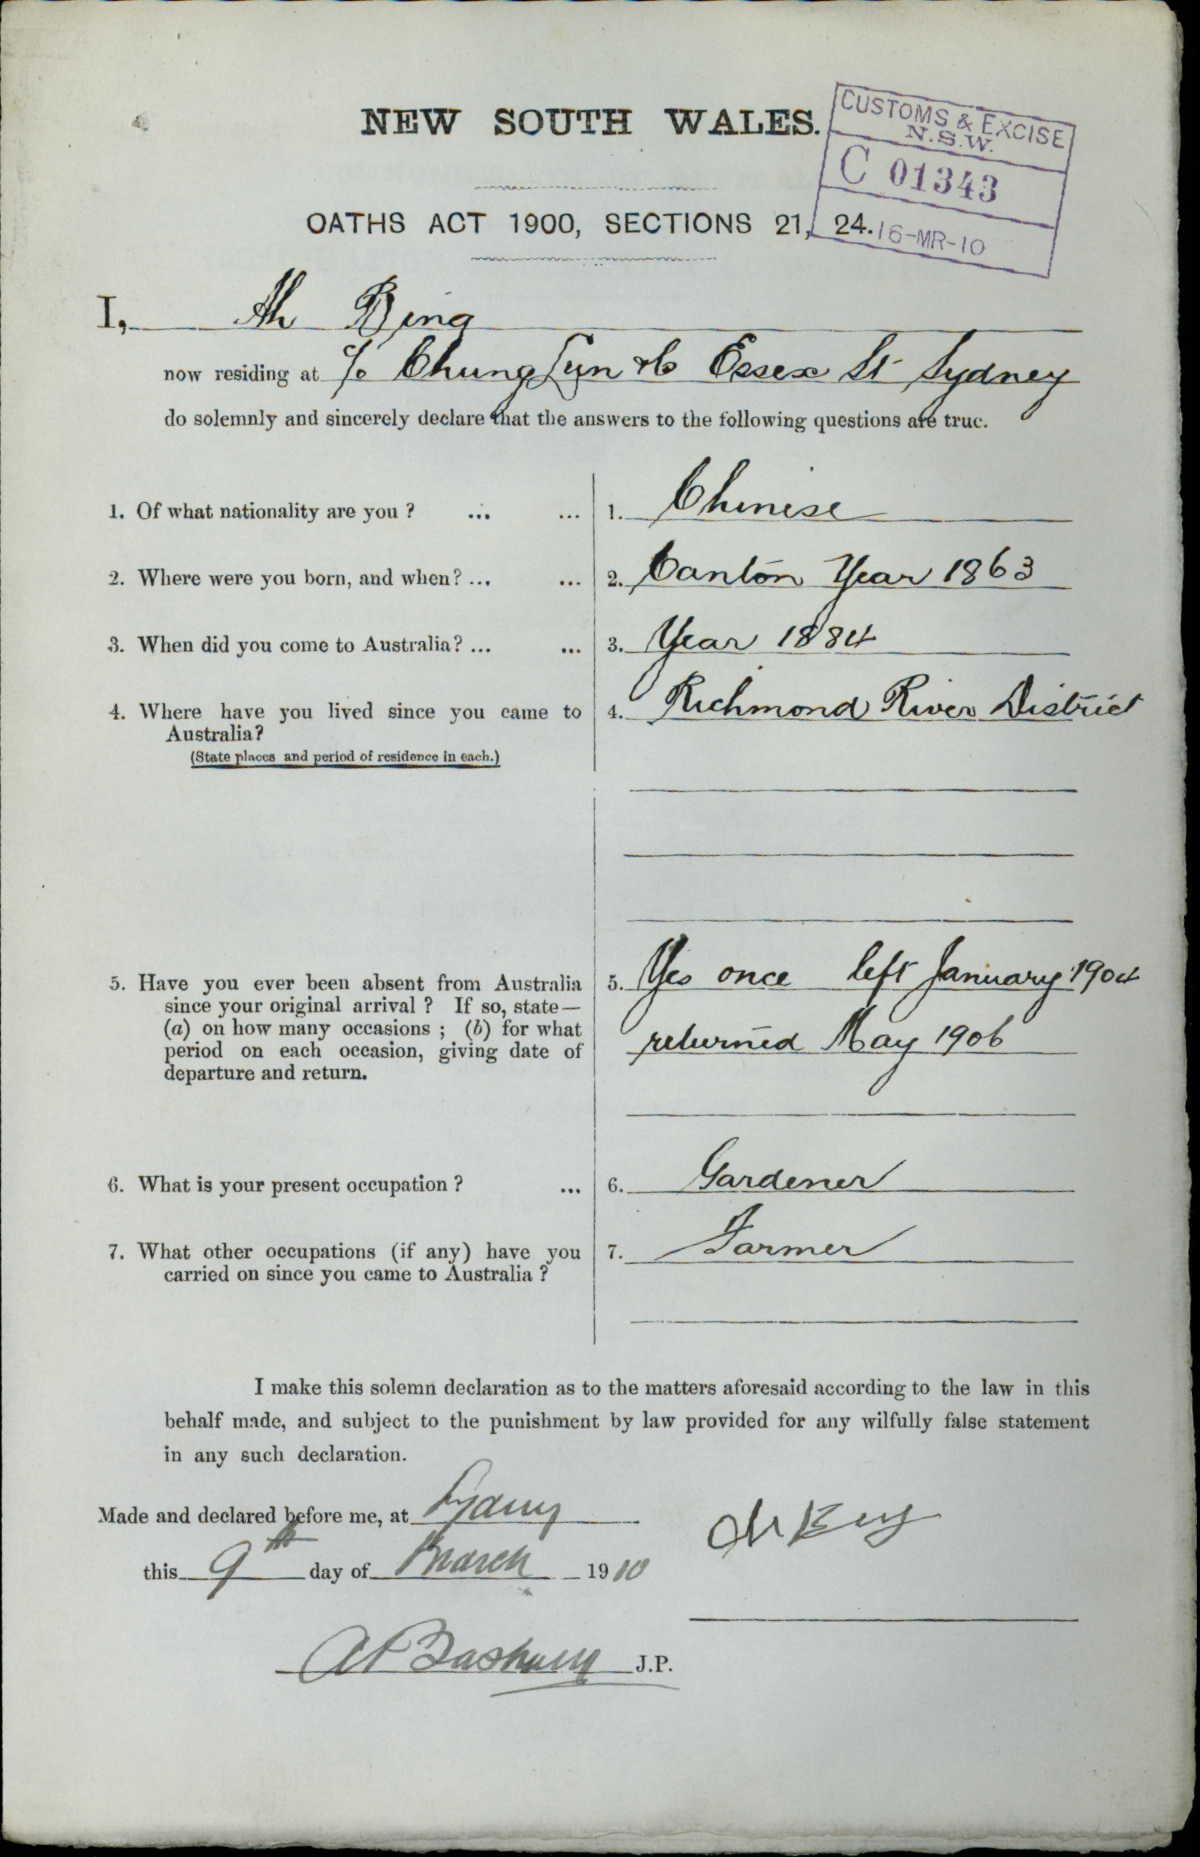 NEW SOUTH WALES.
CUSTOMS & EXCISE
N.S.W.
C 01343
16-MR-10
OATHS ACT 1900, SECTIONS 21, 24.
I, Ah Bing
now residing at c/o Chung Lun & Co Essex St Sydney
do solemnly and sincerely declare that the answers to the following questions are true.
1. Of what nationality are you ? ... ... 1. Chinese
2. Where were you born, and when? ... ... 2. Canton Year 1863
3. When did you come to Australia? ... ... 3. Year 1884
4. Where have you lived since you came to 4. Richmond River District
Australia?
(State places and period of residence in each.)
5. Have you ever been absent from Australia 5. Yes once left January 1904
since your original arrival ? If so, state—
(a) on how many occasions ; (b) for what returned May 1906
period on each occasion, giving date of
departure and return.
6. What is your present occupation ? ... 6. Gardener
7. What other occupations (if any) have you 7. Farmer
carried on since you came to Australia ?
I make this solemn declaration as to the matters aforesaid according to the law in this
behalf made, and subject to the punishment by law provided for any wilfully false statement
in any such declaration.
Made and declared before me, at Sydney
this 9th day of March 1910
J.P.